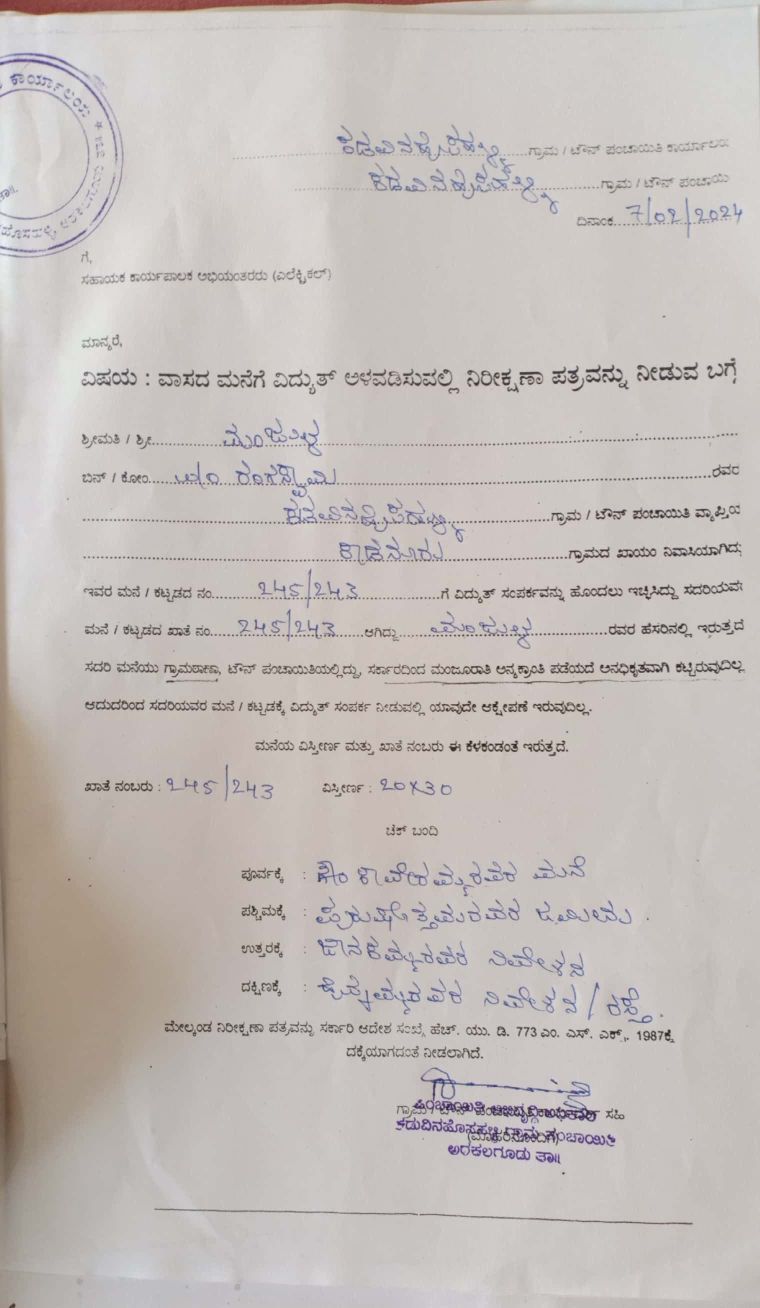 ಕಾರ್ಯಾಲಯ
ಕಡವಿನಹೊಸಹಳ್ಳಿ ಗ್ರಾಮ / ಟೌನ್ ಪಂಚಾಯಿತಿ ಕಾರ್ಯಾಲಯ
ಕಡವಿನಹೊಸಹಳ್ಳಿ ಗ್ರಾಮ / ಟೌನ್ ಪಂಚಾಯಿ
ದಿನಾಂಕ 7/02/2024
ಗೆ,
ಸಹಾಯಕ ಕಾರ್ಯಪಾಲಕ ಅಭಿಯಂತರರು (ಎಲೆಕ್ಟ್ರಿಕಲ್)
ಮಾನ್ಯರೆ,
ವಿಷಯ : ವಾಸದ ಮನೆಗೆ ವಿದ್ಯುತ್ ಅಳವಡಿಸುವಲ್ಲಿ ನಿರೀಕ್ಷಣಾ ಪತ್ರವನ್ನು ನೀಡುವ ಬಗ್ಗೆ
ಶ್ರೀಮತಿ / ಶ್ರೀ ಮಂಜುಳ
ಬಿನ್ / ಕೋಂ ರಂಗಸ್ವಾಮಿ ರವರ
ಕಡವಿನಹೊಸಹಳ್ಳಿ ಗ್ರಾಮ / ಟೌನ್ ಪಂಚಾಯಿತಿ ವ್ಯಾಪ್ತಿಯ
ಕಾಡನೂರು ಗ್ರಾಮದ ಖಾಯಂ ನಿವಾಸಿಯಾಗಿದ್ದು
ಇವರ ಮನೆ / ಕಟ್ಟಡದ ನಂ 245/243 ಗೆ ವಿದ್ಯುತ್ ಸಂಪರ್ಕವನ್ನು ಹೊಂದಲು ಇಚ್ಛಿಸಿದ್ದು ಸದರಿಯವರ
ಮನೆ / ಕಟ್ಟಡದ ಖಾತೆ ನಂ 245/243 ಆಗಿದ್ದು ಮಂಜುಳ ರವರ ಹೆಸರಿನಲ್ಲಿ ಇರುತ್ತದೆ
ಸದರಿ ಮನೆಯು ಗ್ರಾಮಠಾಣಾ, ಟೌನ್ ಪಂಚಾಯಿತಿಯಲ್ಲಿದ್ದು, ಸರ್ಕಾರದಿಂದ ಮಂಜೂರಾತಿ ಅನ್ಯಕ್ರಾಂತಿ ಪಡೆಯದೆ ಅನಧಿಕೃತವಾಗಿ ಕಟ್ಟಿರುವುದಿಲ್ಲ
ಆದುದರಿಂದ ಸದರಿಯವರ ಮನೆ / ಕಟ್ಟಡಕ್ಕೆ ವಿದ್ಯುತ್ ಸಂಪರ್ಕ ನೀಡುವಲ್ಲಿ ಯಾವುದೇ ಆಕ್ಷೇಪಣೆ ಇರುವುದಿಲ್ಲ.
ಮನೆಯ ವಿಸ್ತೀರ್ಣ ಮತ್ತು ಖಾತೆ ನಂಬರು ಈ ಕೆಳಕಂಡಂತೆ ಇರುತ್ತದೆ.
ಖಾತೆ ನಂಬರು : 245/243 ವಿಸ್ತೀರ್ಣ : 20x30
ಚೆಕ್ ಬಂದಿ
ಪೂರ್ವಕ್ಕೆ : ಗೌರಿ ಕಾವೇರಮ್ಮರವರ ಮನೆ
ಪಶ್ಚಿಮಕ್ಕೆ : ಪುರುಷೋತ್ತಮರವರ ಜಮೀನು.
ಉತ್ತರಕ್ಕೆ : ಜಾನಕಮ್ಮರವರ ನಿವೇಶನ
ದಕ್ಷಿಣಕ್ಕೆ : ನಿವೇಶನ / ರಸ್ತೆ.
ಮೇಲ್ಕಂಡ ನಿರೀಕ್ಷಣಾ ಪತ್ರವನ್ನು ಸರ್ಕಾರಿ ಆದೇಶ ಸಂಖ್ಯೆ ಹೆಚ್. ಯು. ಡಿ. 773 ಎಂ. ಎಸ್. ಎಕ್ಸ್. 1987ಕ್ಕೆ
ದಕ್ಕೆಯಾಗದಂತೆ ನೀಡಲಾಗಿದೆ.
ಪಂಚಾಯಿತಿ ಅಭಿವೃದ್ಧಿ ಅಧಿಕಾರಿ ಸಹಿ
ಕಡುವಿನಹೊಸಹಳ್ಳಿ ಗ್ರಾಮ ಪಂಚಾಯಿತಿ
ಅರಕಲಗೂಡು ತಾ॥